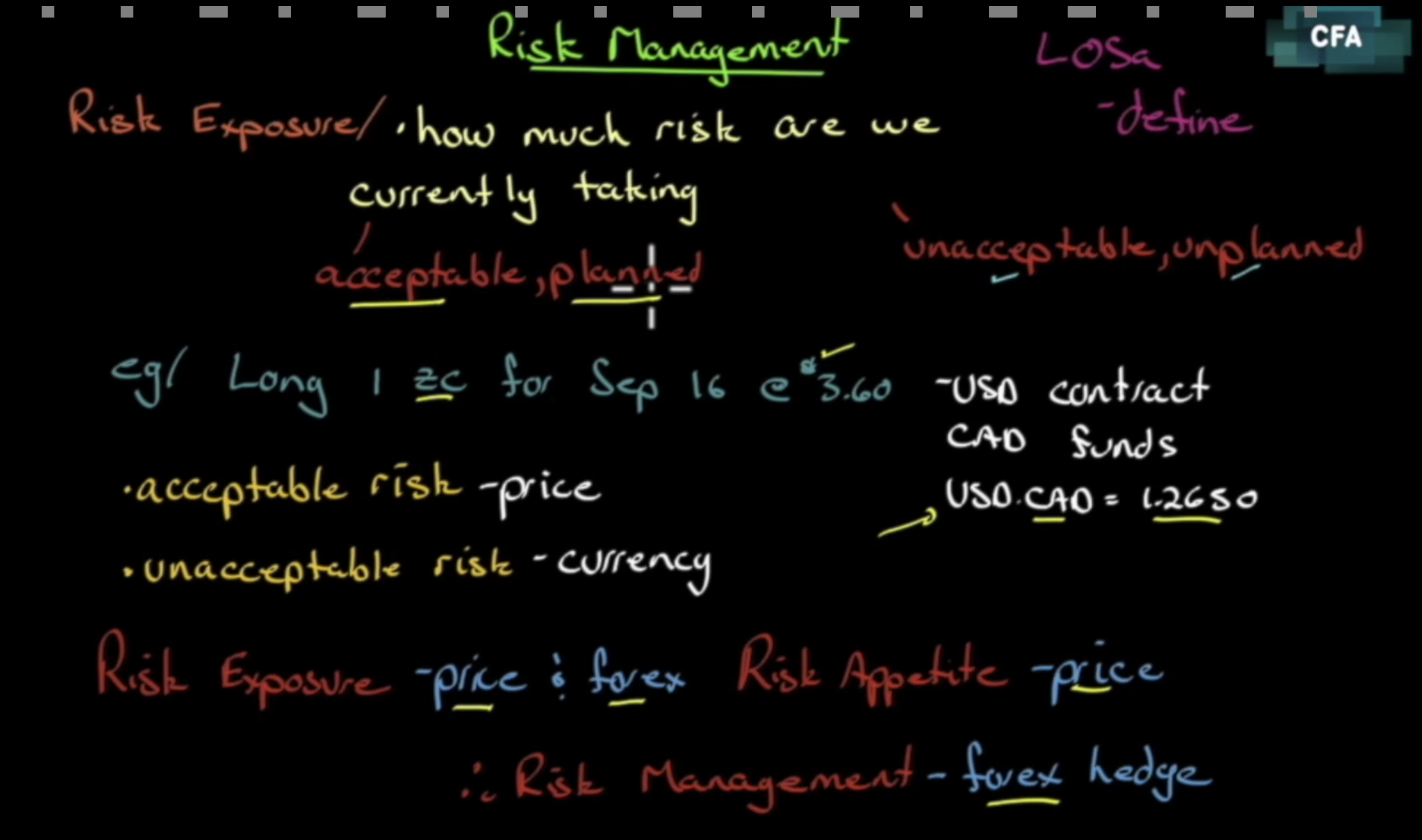 Risk Management
LOSa
- define
CFA
Risk Exposure/ • how much risk are we
currently taking
acceptable, planned
unacceptable, unplanned
eg/ Long 1 ZC for Sep 16 @ $3.60
- USD contract
CAD funds
USD.CAD = 1.2650
• acceptable risk - price
• unacceptable risk - currency
Risk Exposure - price & forex
Risk Appetite - price
∴ Risk Management - forex hedge